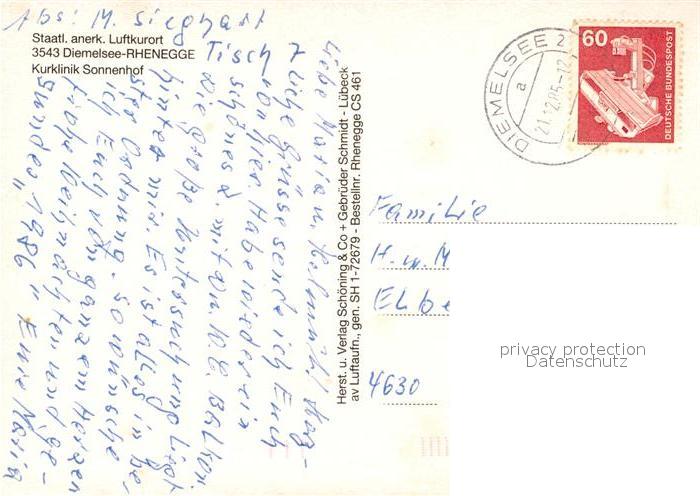 Abs: M. Sieghart
Staatl. anerk. Luftkurort
3543 Diemelsee-RHENEGGE
Kurklinik Sonnenhof
Liebe Maria u. Helmuth! Herz-
liche Grüsse sende ich Euch
von hier. Habe wieder ein
Tisch
schönes Z. mit D. u. W.C. Balkon.
Die große Untersuchung liegt
hinter mir. Es ist alles in be-
ster Ordnung. So wünsche
ich Euch von ganzem Herzen
frohe Weihnachten und ge-
sundes "1986" Eure Maria
Herst. u. Verlag Schöning & Co + Gebrüder Schmidt - Lübeck
av Luftaufn., gen. SH 1-72679 - Bestellnr. Rhenegge CS 461
DIEMELSEE 2
a
21.12.85-12
60
DEUTSCHE BUNDESPOST
Familie
H. u. M
Elbe
4630
privacy protection
Datenschutz